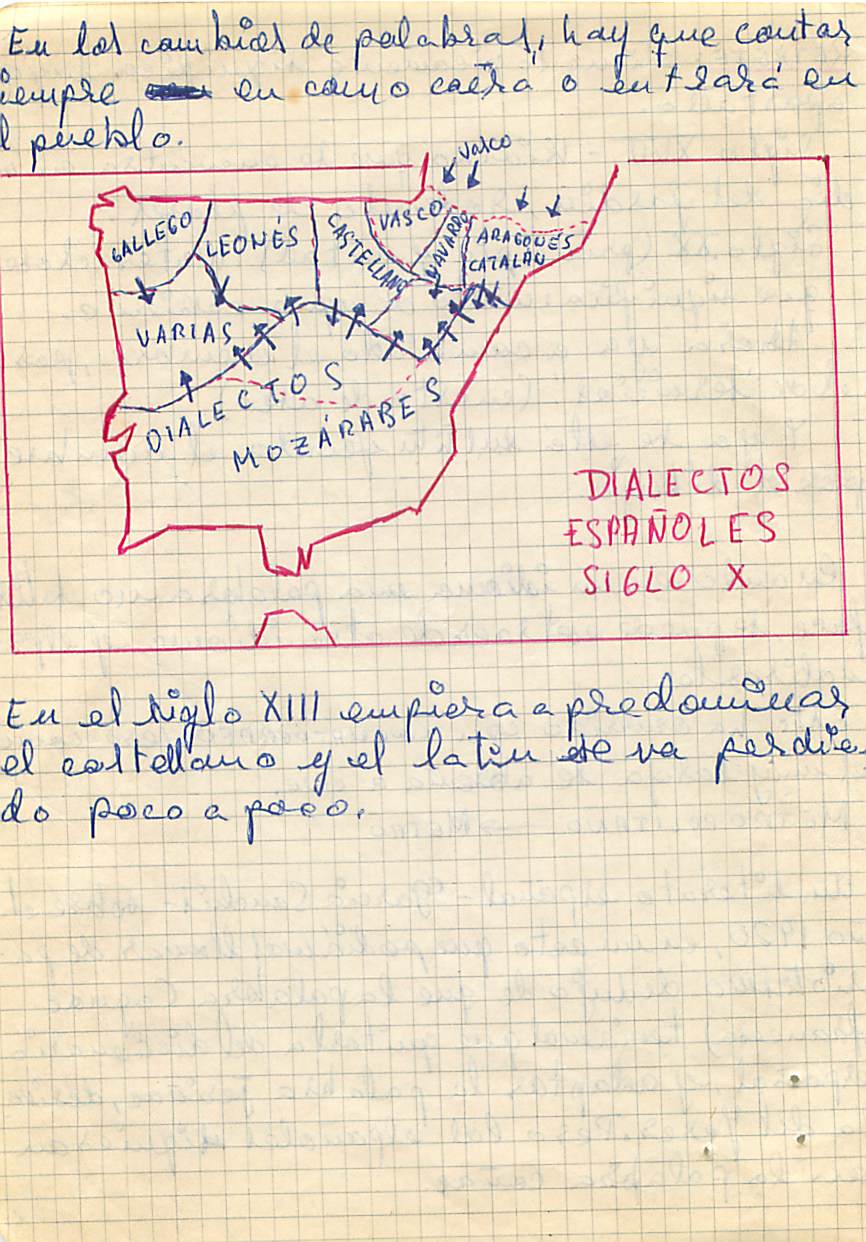 En los cambios de palabras, hay que contar
iempre en como caerá o entrará en
l pueblo.
Vasco
GALLEGO
LEONÉS
CASTELLANO
VASCO
NAVARRO
ARAGONÉS
CATALÁN
VARIAS
DIALECTOS
MOZÁRABES
DIALECTOS
ESPAÑOLES
SIGLO X
En el siglo XIII empieza a predominar
el castellano y el latin se va perdie
do poco a poco.